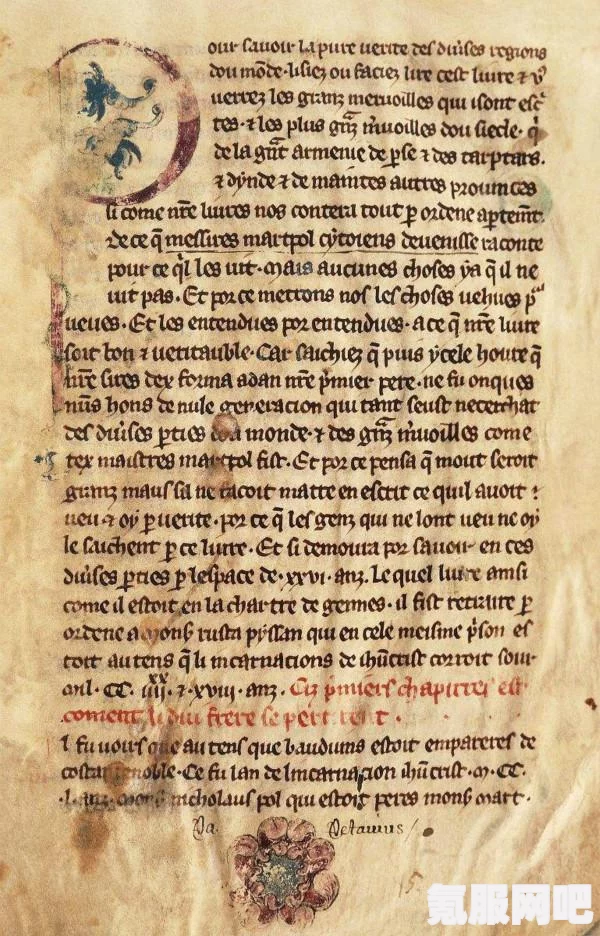 our sauoir la pure uerite des diuses regions
dou mõde. lisiez ou faciez lire cest liure ⁊ vͦ
uerrez les granz meruoilles qui i sont esc̾
tes. ⁊ les plus gñz m̾uoilles dou siecle. q̾
de la gñt armenie de p̱se ⁊ des tarptars.
⁊ dynde ⁊ de maintes autres prouinces
si come nr̃e liures nos contera tout p̱ ordene
de ce q̃ messires marcpol cytoiens deuenisse raconte
pour ce ql les uit. Mais aucunes choses ya q̃ il ne
uit pas. Et por ce metrons nos les choses uehues p̱
ueues. Et les entendues por entendues. a ce q̃ nr̃e liure
soit bon ⁊ ueritauble. Car saichiez q̃ puis ycele houre q̃
nr̃e sires dex forma adan nr̃e p̾mier pere. ne fu onques
nũs hons de nule generacion qui tant seust
des diuses p̱ties monde. ⁊ des gñz m̾uoilles come
maistres marcpol fist. Et por ce pensa q̃ mout seroit
granz maus sa ne facoit matre en escrit ce quil auoit
ueu ⁊ oy p̱ uerite. por ce q̃ les genz qui ne lont ueu ne oy
le saichent p̱ ce liure. Et si demoura por sauoir en ces
diuses p̱ties p̱ lespace de. xxvi. anz. Le quel liure ainsi
come il estoit en la chartre de gennes. il fist retraire p̱
ordene a mons rusta pysan qui en cele meisme p̾son es
toit au tens q̃ li incarnacions de ihũcrist corroit sour
mil. CC. iiij. xx ⁊ xviii. anz. Ci p̾miers chapitres est
coment li dui frere se p̱tirent.
l fu uoirs que au tens que bauduins estoit empareres de
noble. Ce fu lan de lincarnacion ihũcrist. M. CC.
.l. anz. mons nicholaus pol qui estoit peres mons marc.
Petauius
15
氪服网吧